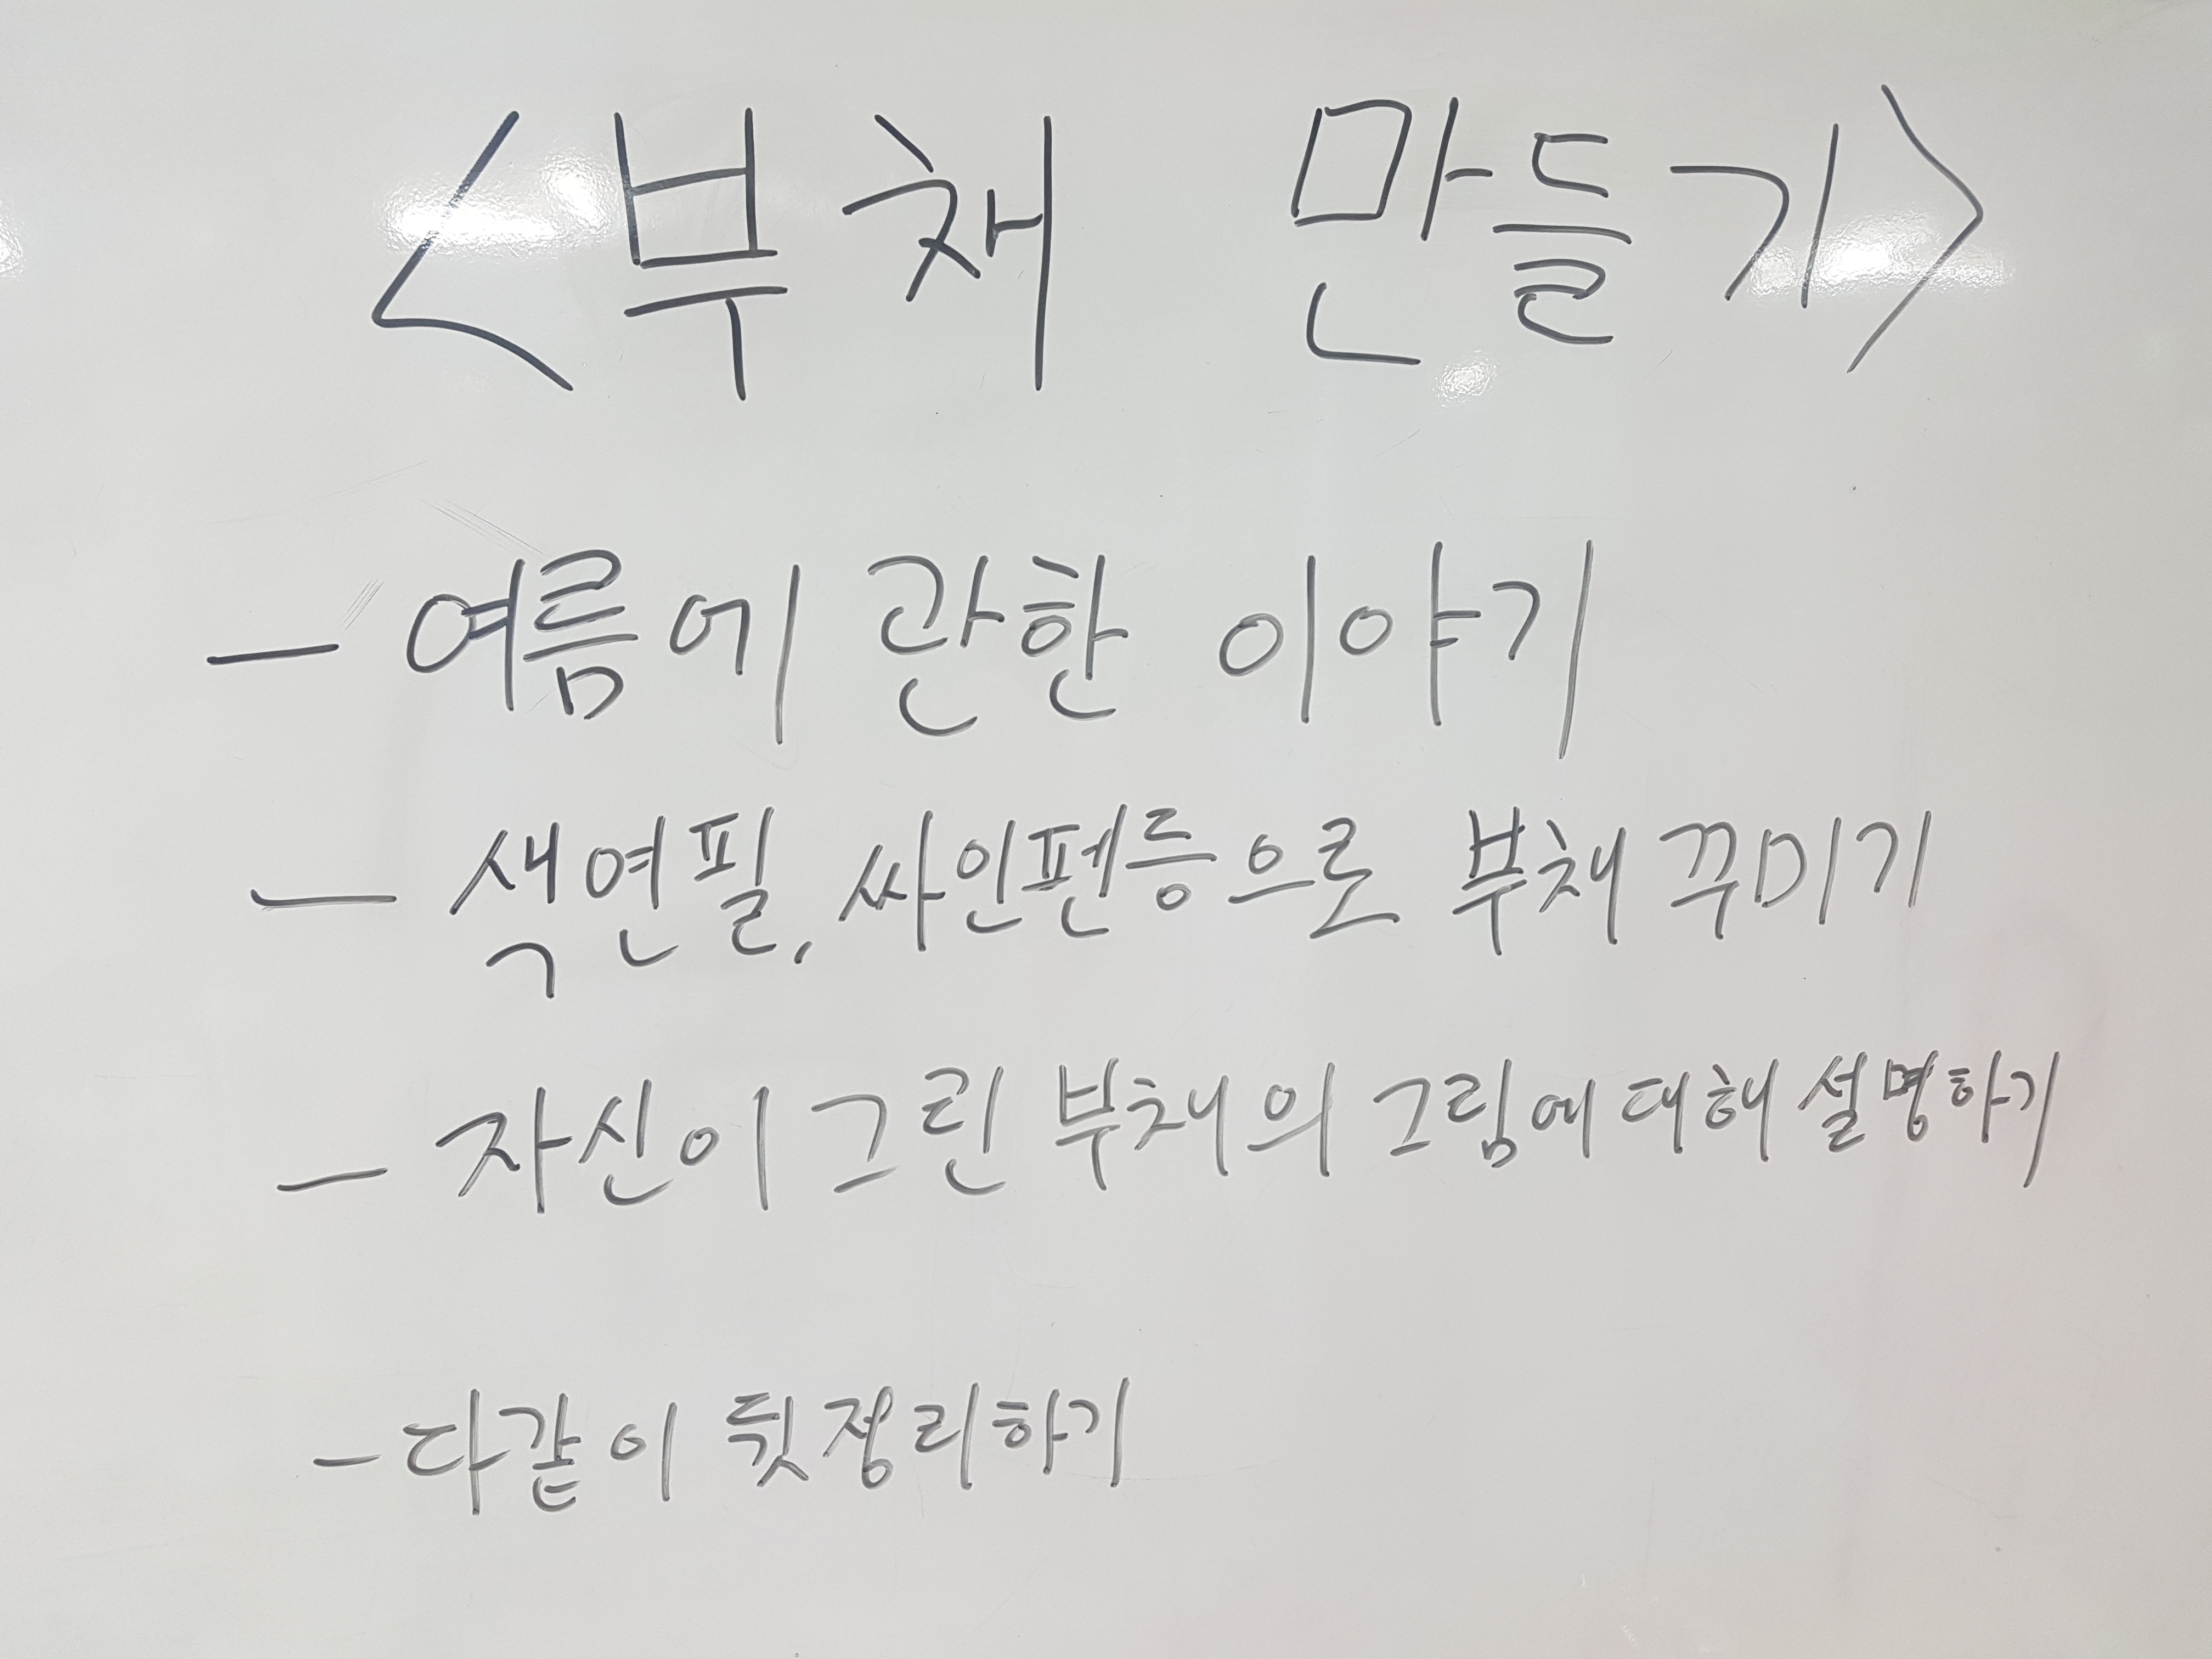 <부채 만들기>
- 여름에 관한 이야기
- 색연필, 싸인펜등으로 부채 꾸미기
- 자신이 그린 부채의 그림에 대해 설명하기
- 다같이 뒷정리하기